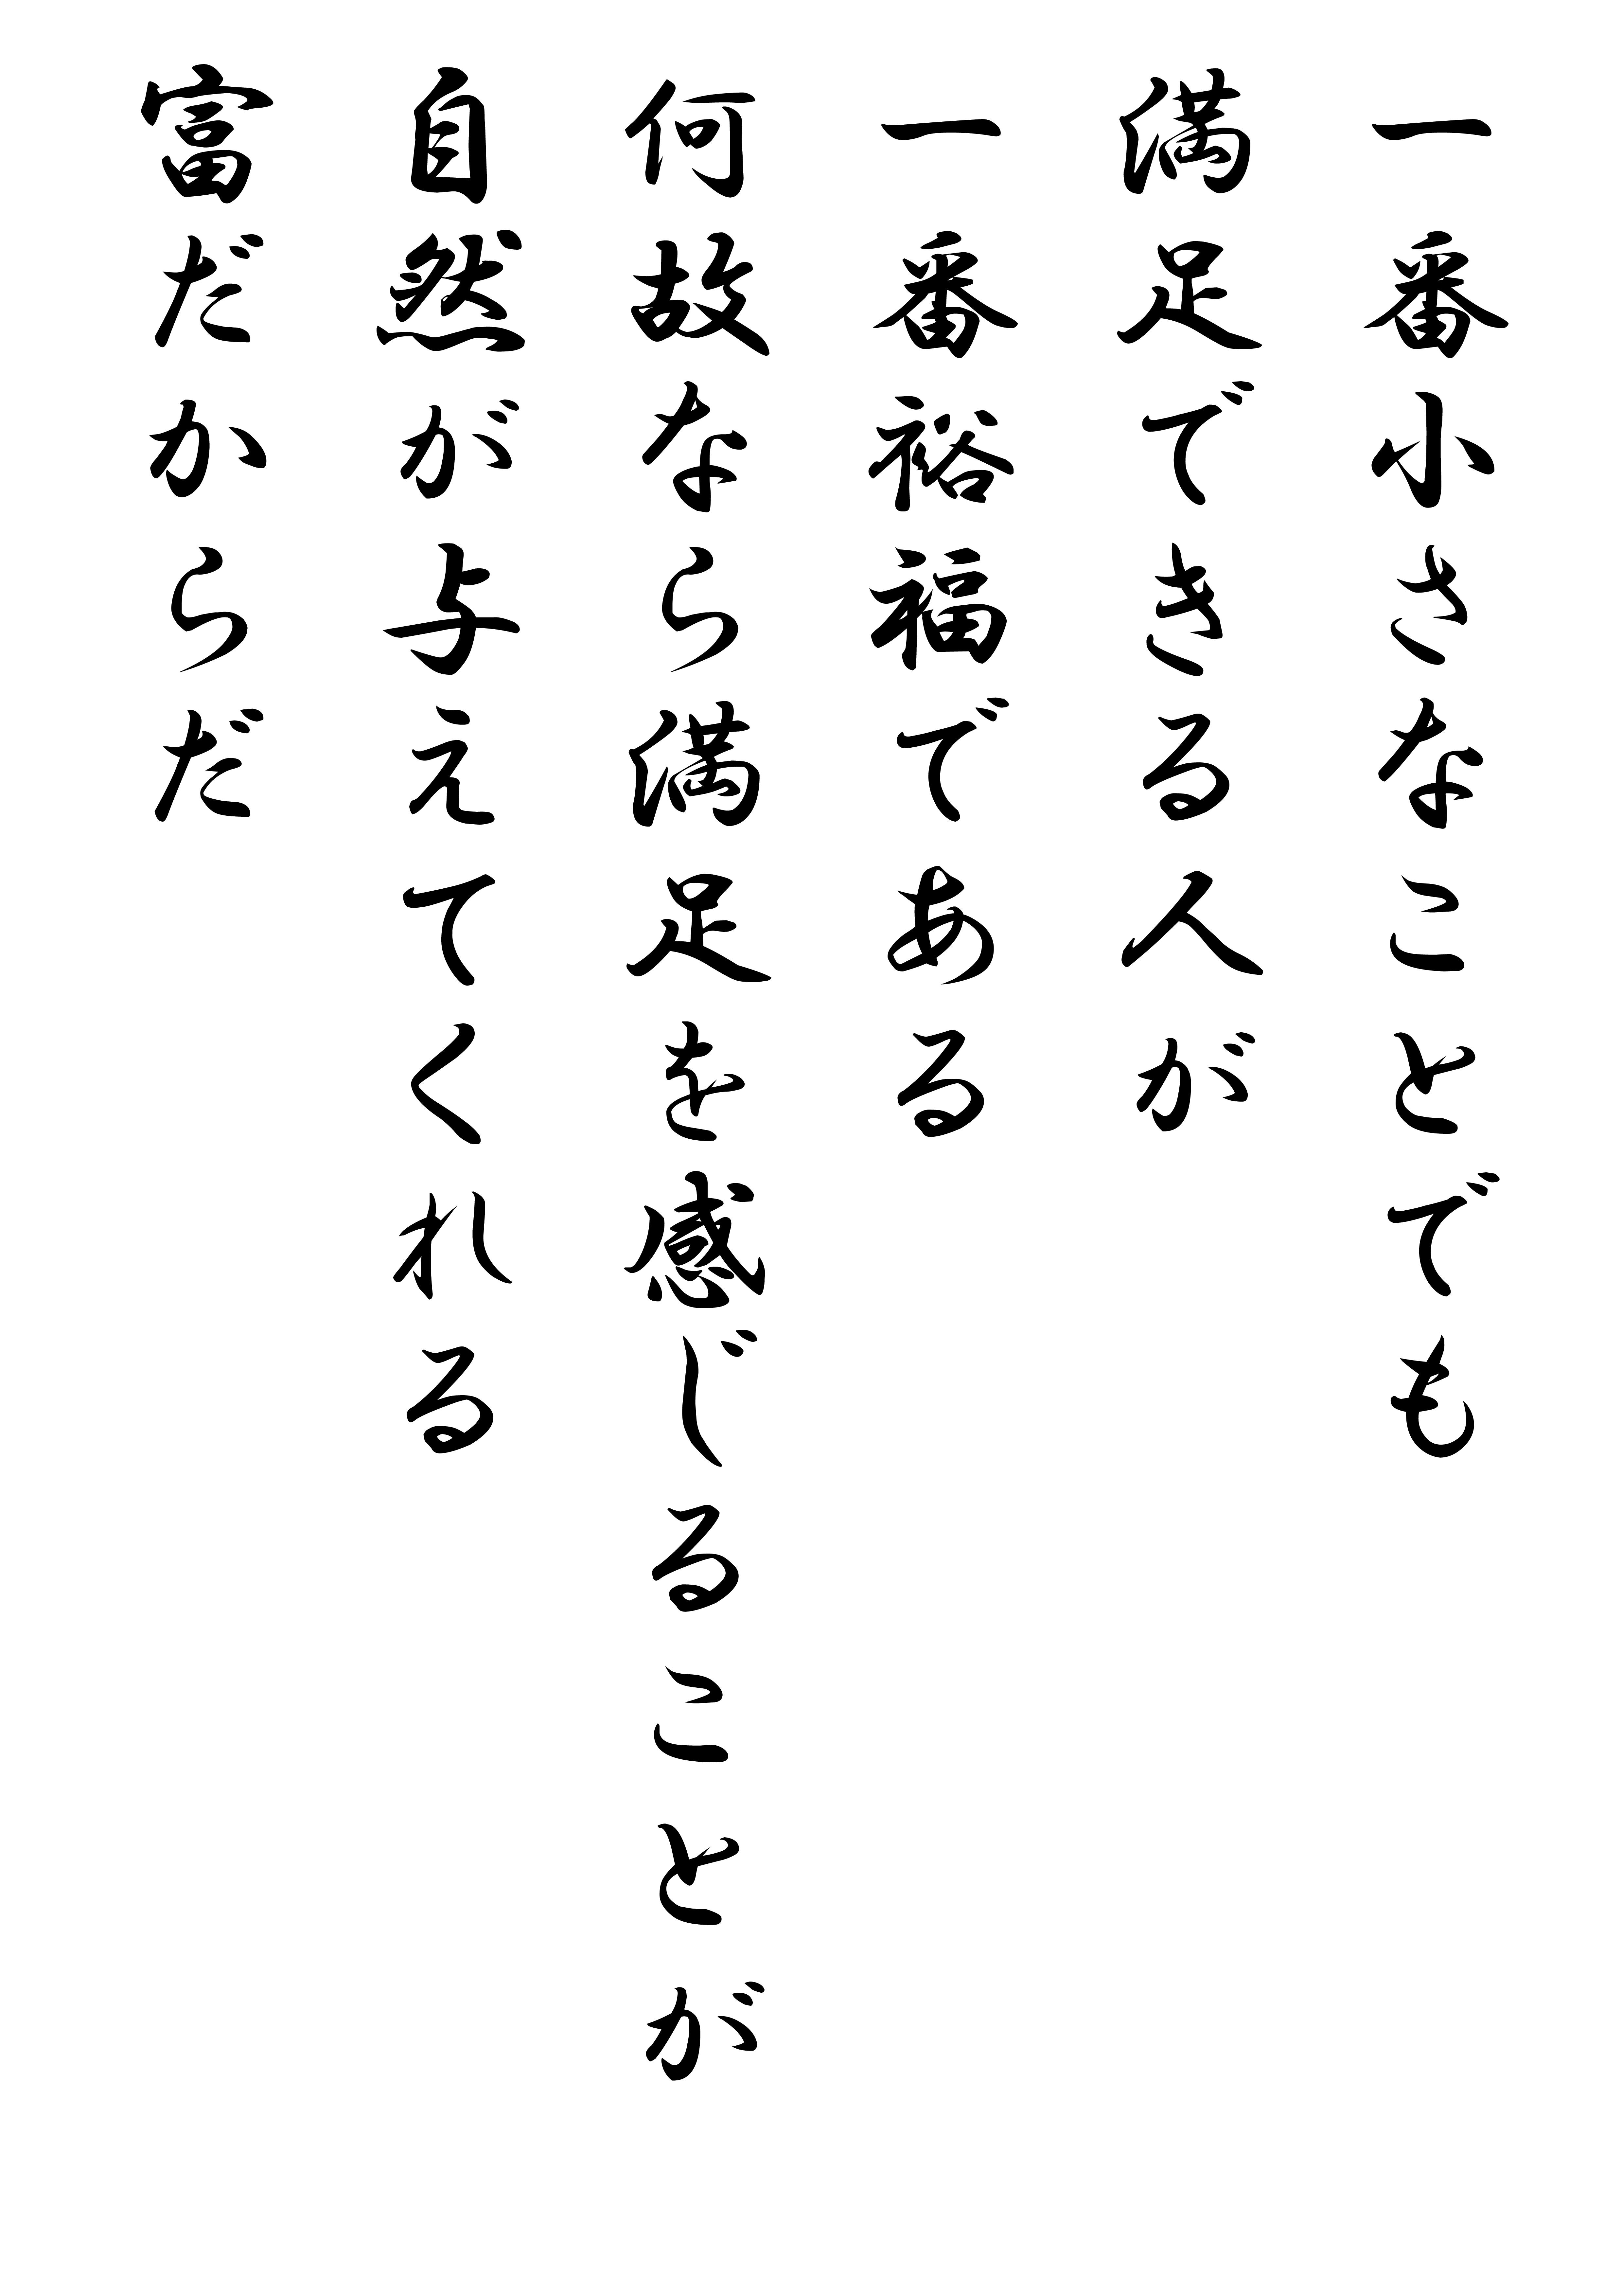 一番小さなことでも
満足できる人が
一番裕福である
何故なら満足を感じることが
自然が与えてくれる
富だからだ